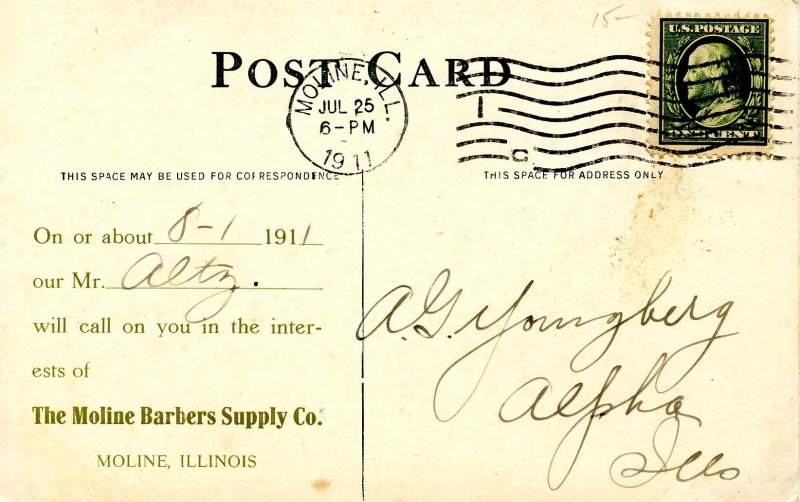 15-
POST CARD
U.S. POSTAGE
MOLINE, ILL.
JUL 25
6-PM
1911
1
C
THIS SPACE MAY BE USED FOR CORRESPONDENCE
THIS SPACE FOR ADDRESS ONLY
On or about 8-1 1911
our Mr. Altz.
will call on you in the inter-
ests of
The Moline Barbers Supply Co.
MOLINE, ILLINOIS
A.G. Youngberg
Alpha
Ills